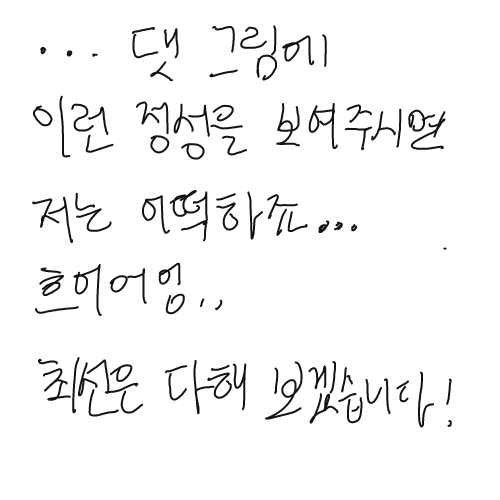 ... 댓 그림에
이런 정성을 보여주시면
저는 어떡하죠...
흐어어엉..
최선은 다해 보겠습니다!